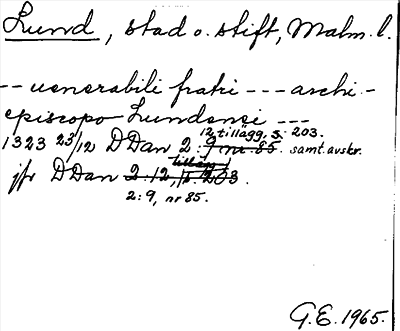 Lund, stad o. stift, Malm. l.
-- uenerabili fratri --- archi-
episcopo Lundensi ---
12 tillägg, s. 203.
1323 23/12 D Dan 2: 9 nr 85. samt. avskr.
tillägg
jfr D Dan 2:12, s. 203.
2:9, nr 85.
G.E. 1965.